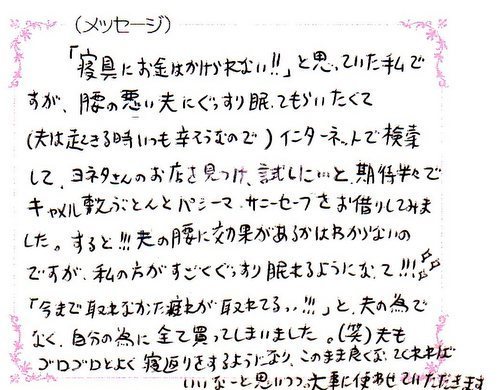 (メッセージ)
「寝具にお金はかけられない!!」と思っていた私で
すが、腰の悪い夫にぐっすり眠ってもらいたくて
(夫は起きる時いつも辛そうなので)インターネットで検索
して、ヨネタさんのお店を見つけ、試しに…と、期待半々で
キャメル敷ぶとんとパシーマ、サニーセーフをお借りしてみま
した。すると!!!夫の腰に効果があるかはわからないの
ですが、私の方がすごくぐっすり眠れるようになって!!!
「今まで取れなかった疲れが取れてるぅ!!!」と、夫の為で
なく、自分の為に全て買ってしまいました。(笑)夫も
ゴロゴロとよく寝返りをするようになり、このまま良くなってくれれば
いいなーと思いつつ、大事に使わせていただきます